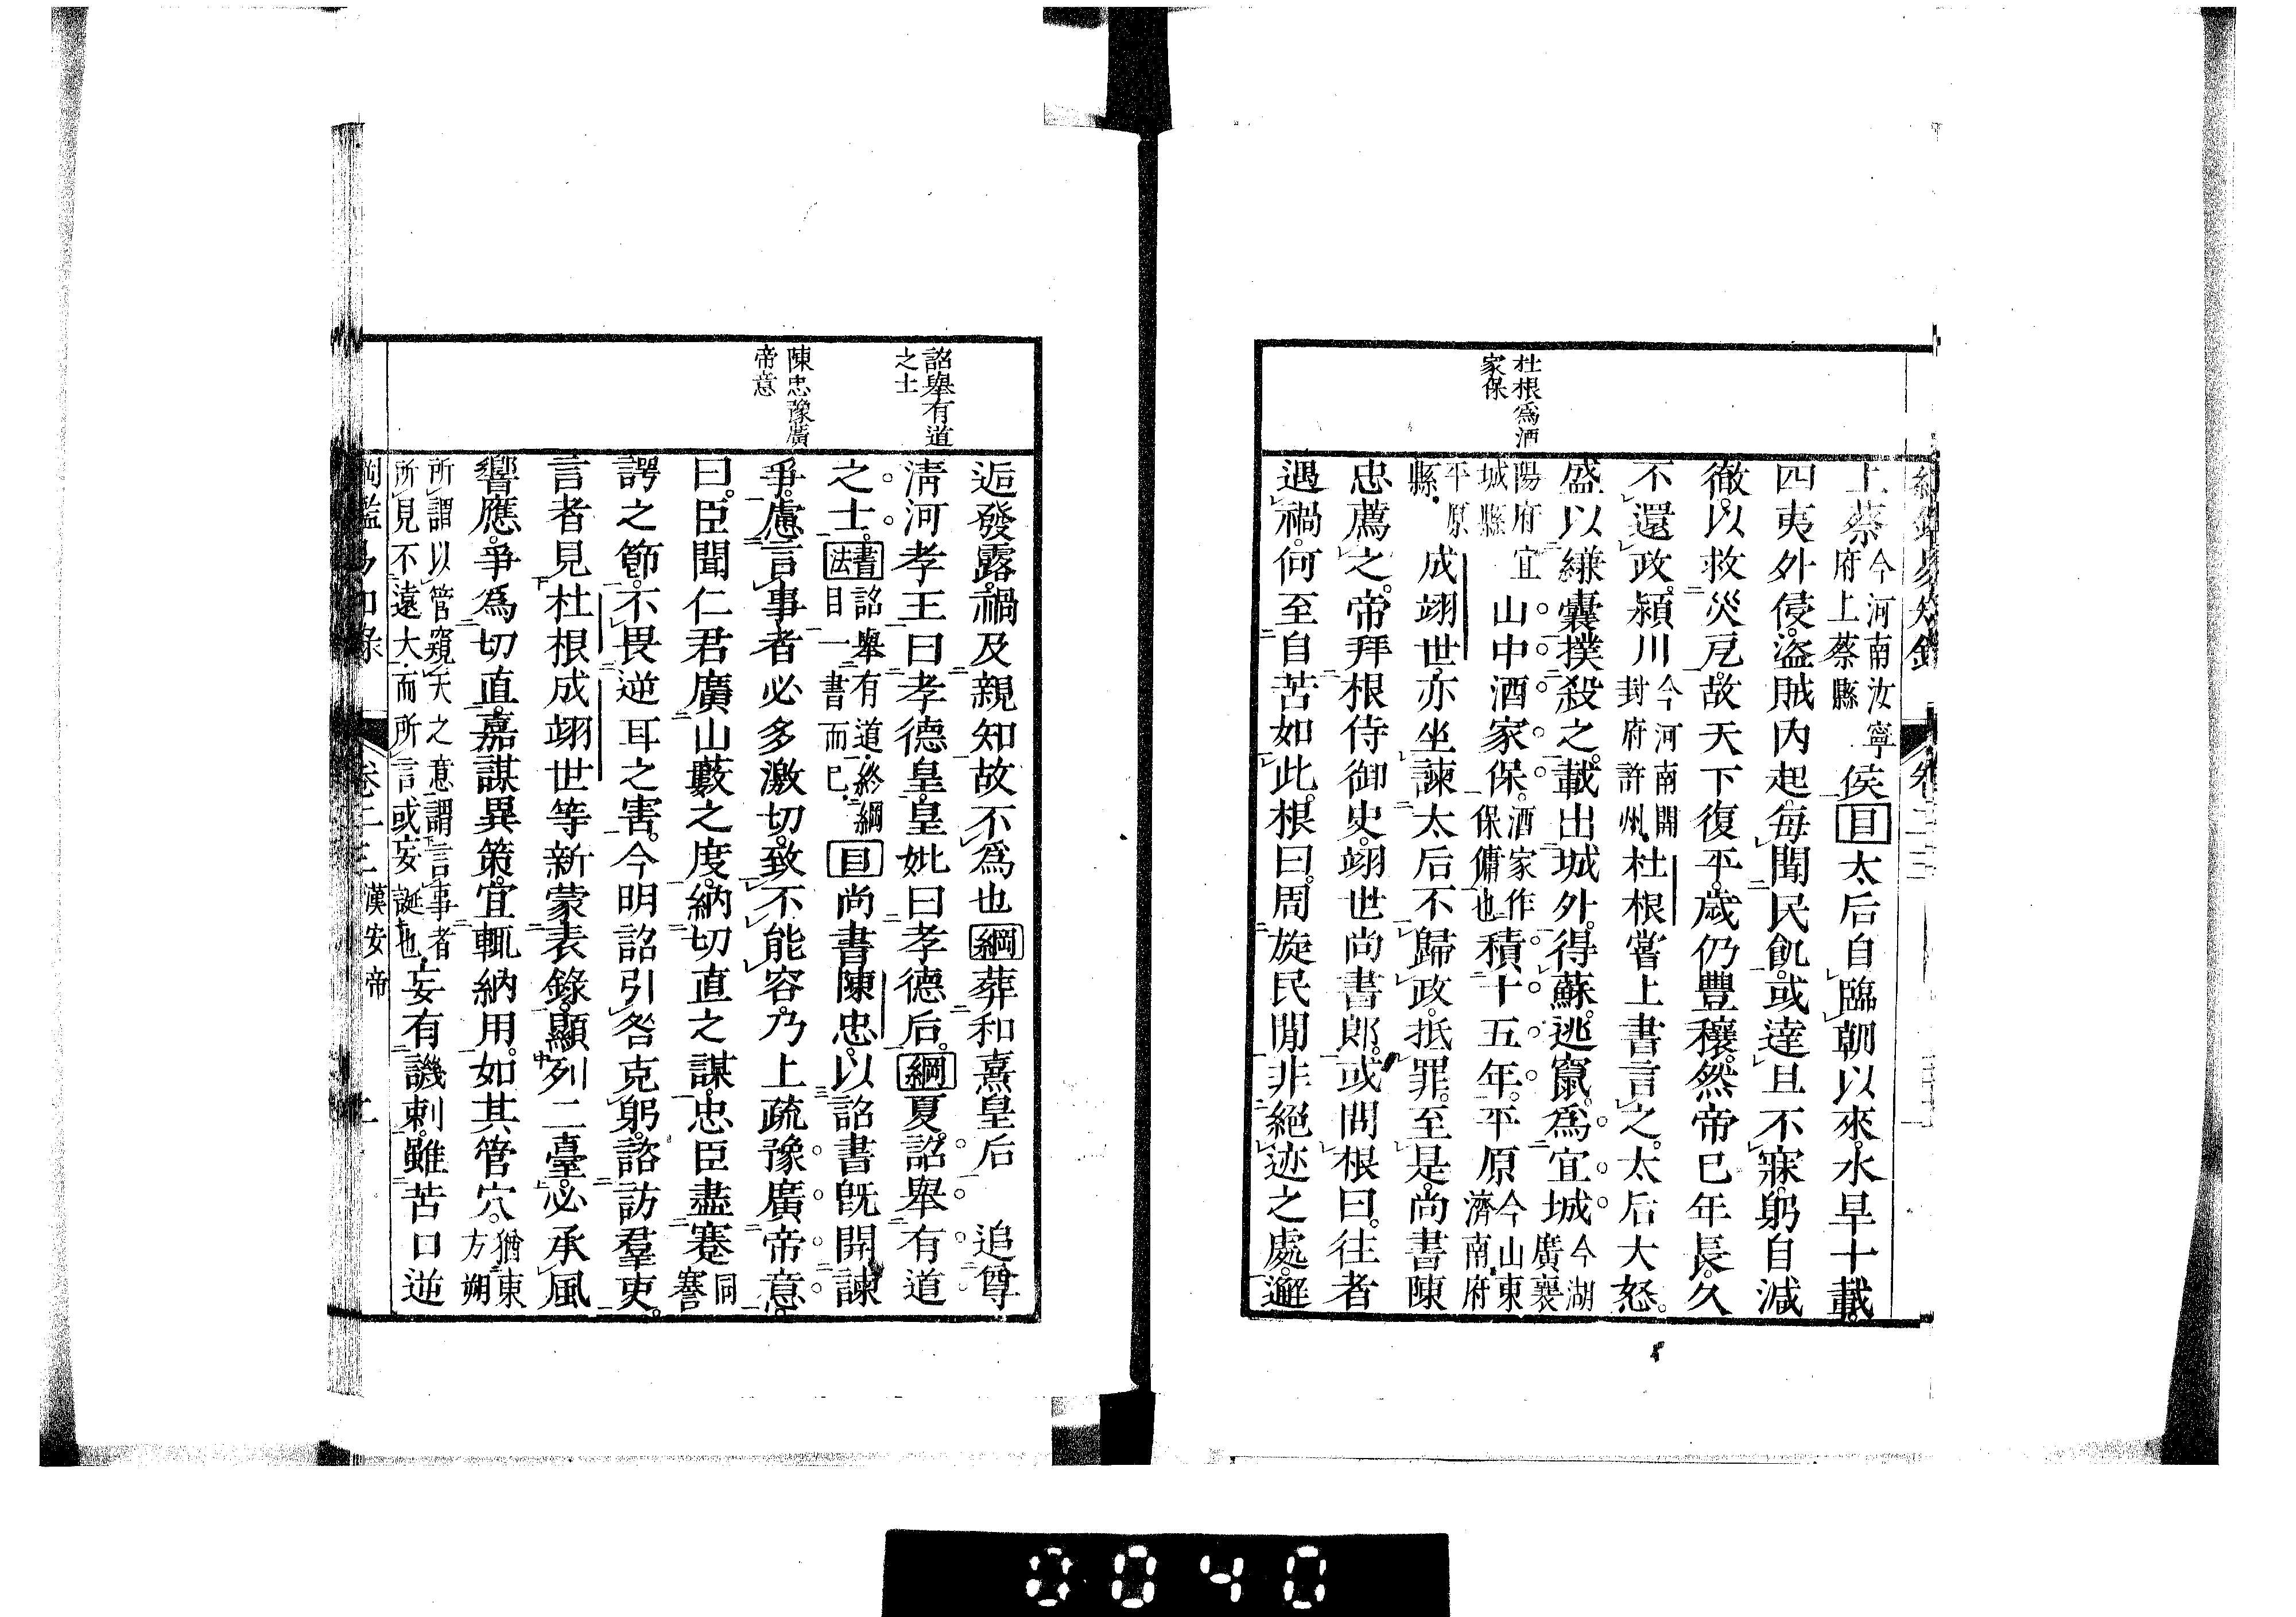 杜根爲酒
家保
上蔡今河南汝寧府上蔡縣侯目太后自臨朝以來水旱十載
四夷外侵盜賊內起每聞民飢或達旦不寐躬自減
徹以救災戹故天下復平歲仍豐穰然帝已年長久
不還政潁川今河南開封府許州杜根嘗上書言之太后大怒
盛以縑囊撲殺之載出城外得蘇逃竄爲宜城今湖廣襄
陽府宜城縣山中酒家保酒家作保傭也積十五年平原今山東濟南府
平原縣成翊世亦坐諫太后不歸政抵罪至是尚書陳
忠薦之帝拜根侍御史翊世尚書郎或問根曰往者
遇禍何至自苦如此根曰周旋民閒非絕迹之處邂
詔舉有道
之士
陳忠豫廣
帝意
逅發露禍及親知故不爲也綱葬和熹皇后 追尊
淸河孝王曰孝德皇皇妣曰孝德后綱夏詔舉有道
之士書法詔舉有道終綱目一書而已目尚書陳忠以詔書旣開諫
爭慮言事者必多激切致不能容乃上疏豫廣帝意
曰臣聞仁君廣山藪之度納切直之謀忠臣盡蹇同謇
諤之節不畏逆耳之害今明詔引咎克躬諮訪羣吏
言者見杜根成翊世等新蒙表錄顯列二臺必承風
響應爭爲切直嘉謀異策宜輒納用如其管穴猶東方朔
所謂以管窺天之意謂言事者所見不遠大而所言或妄誕也妄有譏刺雖苦口逆
卷二三 漢安帝